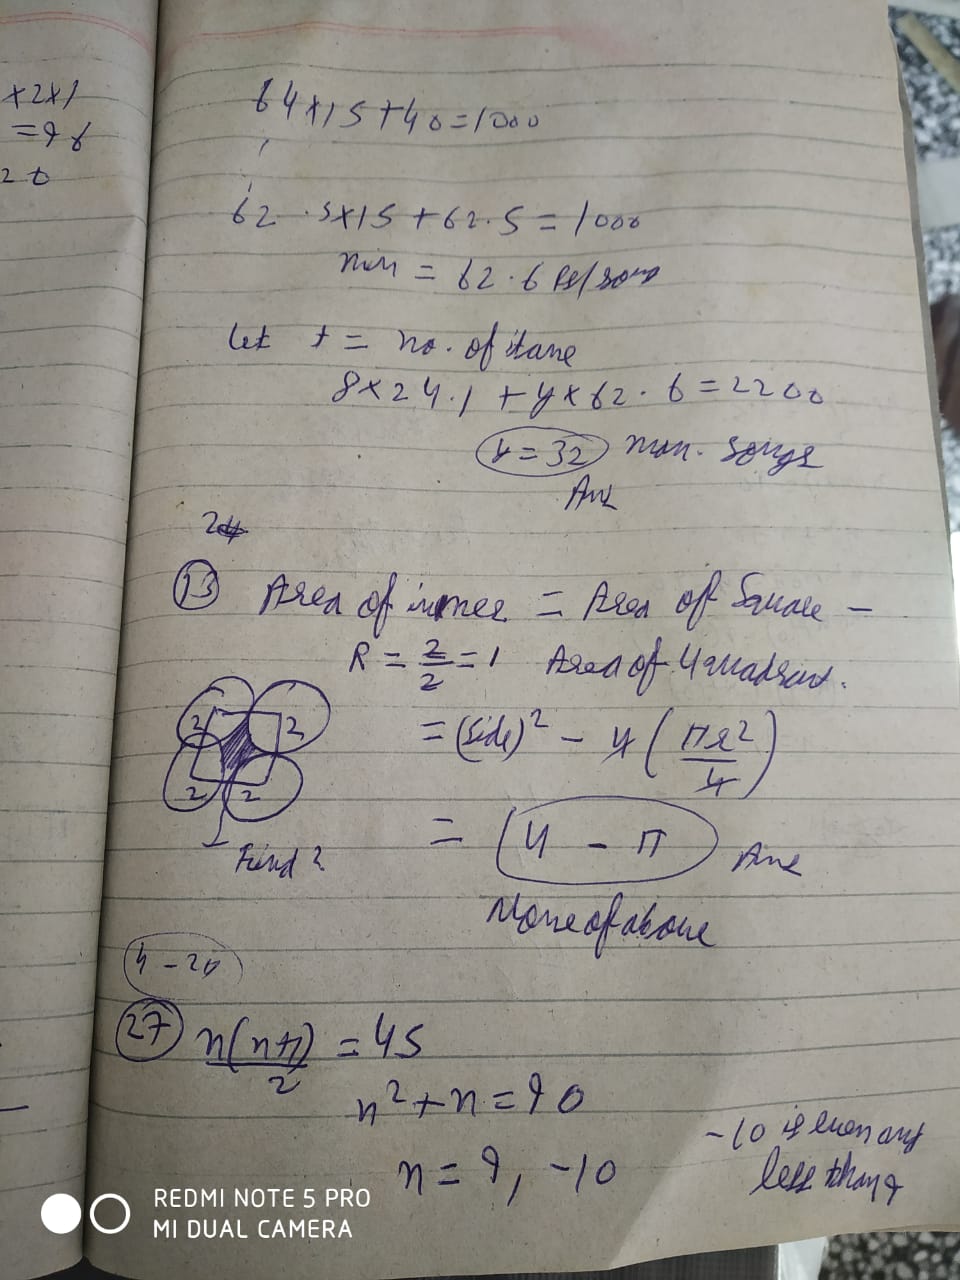 x2x1
=96
20
64x15+40=1000
62.5x15+62.5=1000
min = 62.6 Rs/song
let t = no. of
8x24.1 + yx62.6=2200
y=32 man. songs
Ans
24
13 Area of inner = Area of Square -
R = 2/2 = 1 Area of 4 quadrant.
= (side)² - 4(πr²/4)
2 2 2 2
= 4 - π Ans
Find?
None of above
4-2π
27 n(n+1)/2 = 45
n²+n=90
n=9, -10
-10 is even and
less than 9
REDMI NOTE 5 PRO
MI DUAL CAMERA